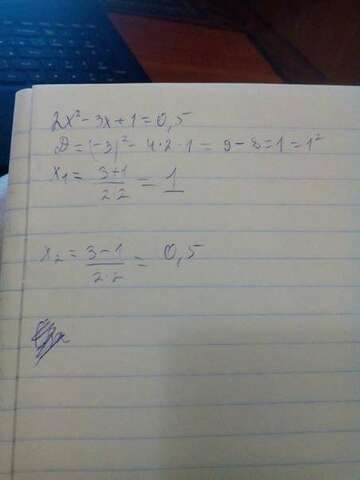 2x² - 3x + 1 = 0,5
D = (-3)² - 4·2·1 = 9 - 8 = 1 = 1²
x₁ = 3+1/2·2 = 1
x₂ = 3-1/2·2 = 0,5